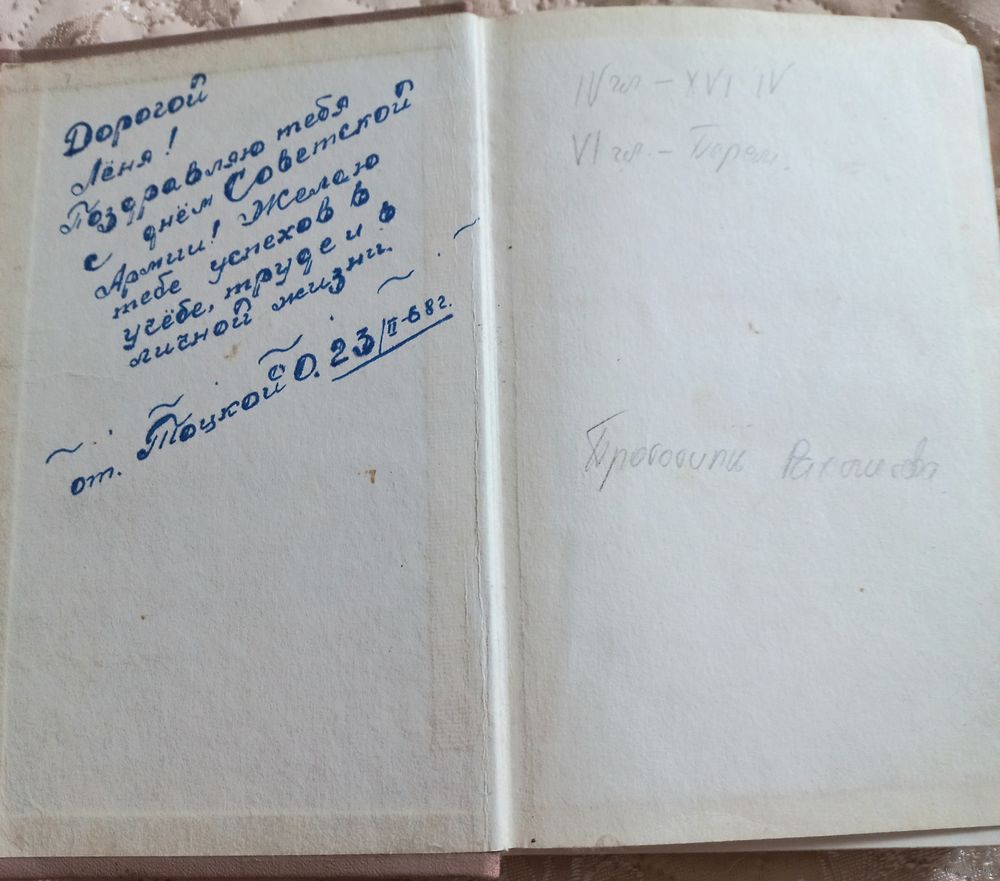 Дорогой
Лёня!
Поздравляю тебя
с днём Советской
Армии! Желаю
тебе успехов в
учёбе, труде и в
личной жизни.
от. Тоцкой О. 23/II-68г.
IV гл - XVI-IV
VI гл -